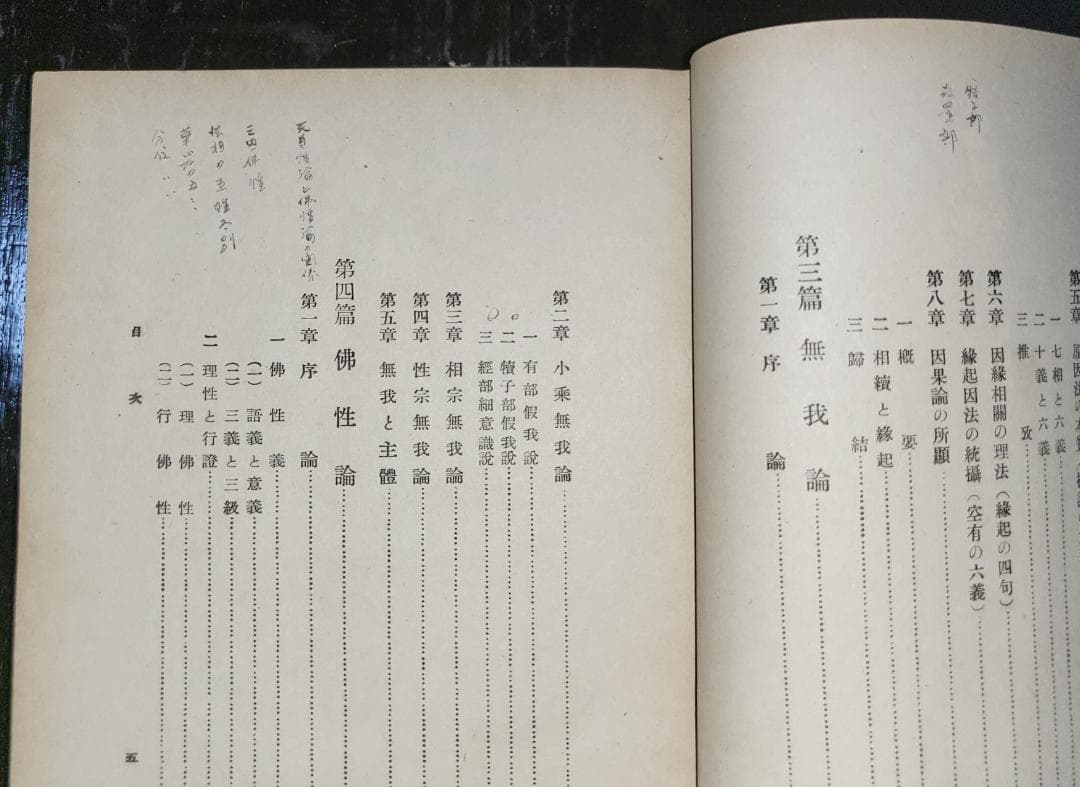 犢子部
第五章
一 七相と六義
二 十義と六義
三 推攷
第六章 因緣相關の理法(緣起の四句)
第七章 緣起因法の統攝(空有の六義)
第八章 因果論の所顯
一 槪要
二 相續と緣起
三 歸結
第三篇 無我論
第一章 序論
第二章 小乘無我論
一 有部假我說
二 犢子部假我說
三 經部細意識說
第三章 相宗無我論
第四章 性宗無我論
第五章 無我と主體
第四篇 佛性論
第一章 序論
一 佛性義
(一) 語義と意義
(二) 三義と三級
二 理性と行證
(一) 理佛性
(二) 行佛性
三因佛性
五姓各別
目次
五